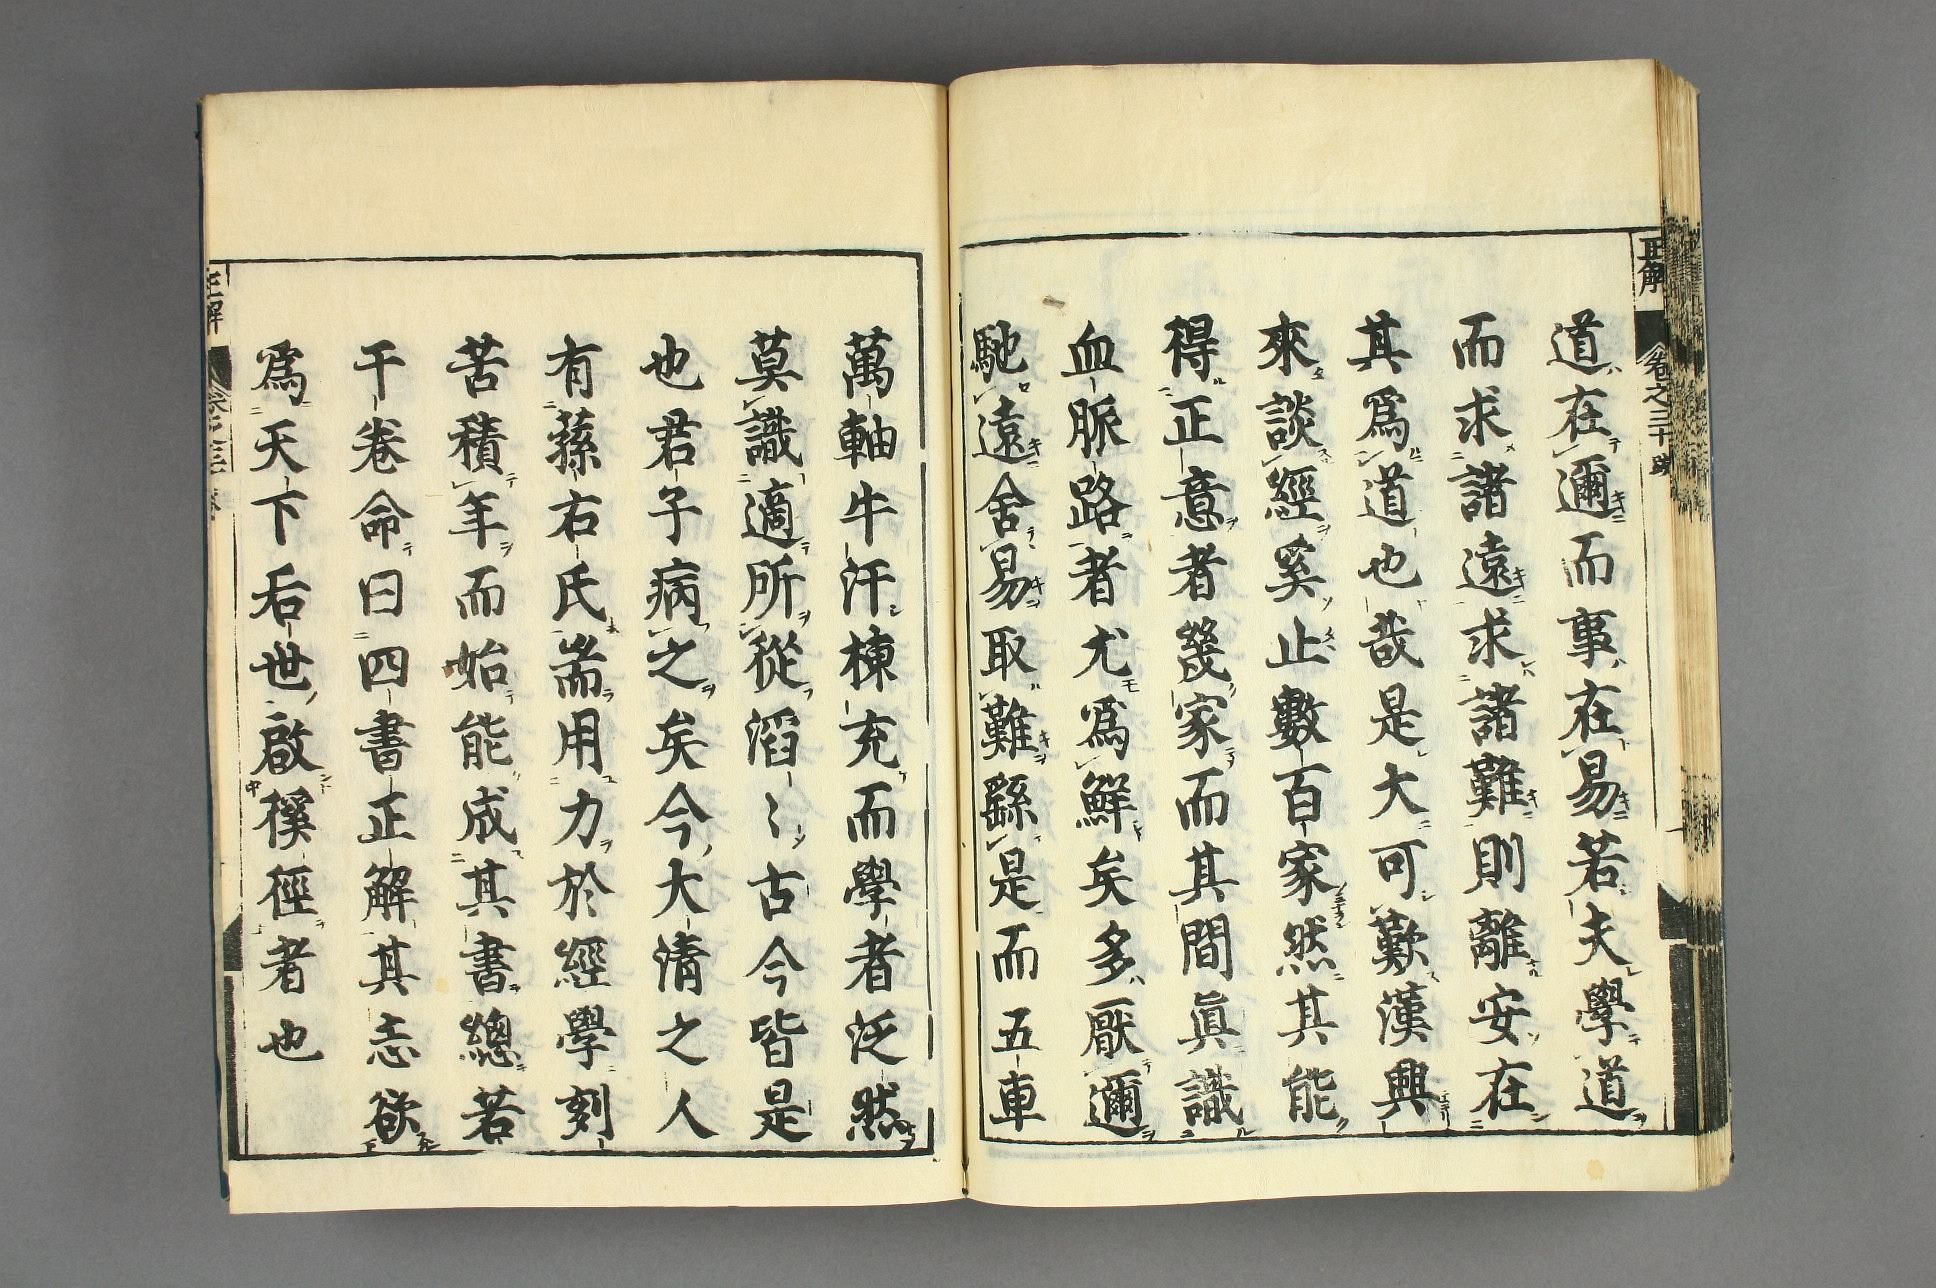 正解
卷之三十跋
道在邇而事在易若夫學道
而求諸遠求諸難則離安在
其爲道也哉是大可歎漢興
來談經奚止數百家然其能
得正意者幾家而其間眞識
血脈路者尤爲鮮矣多厭邇
馳遠舍易取難繇是而五車
萬軸牛汗棟充而學者泛然
莫識適所從滔〻古今皆是
也君子病之矣今大清之人
有蓀右氏耑用力於經學刻
苦積年而始能成其書總若
干卷命曰四書正解其志欲
爲天下后世啟徯徑者也
正解